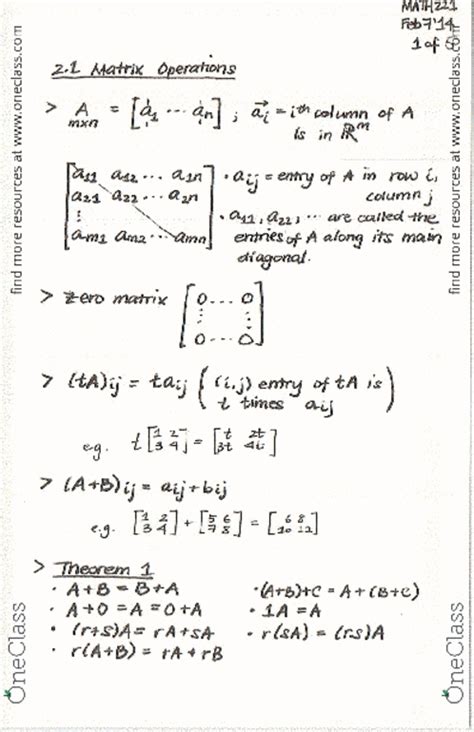 MATH221
Feb 7 '14
1 of 5
2.1 Matrix Operations
> A m×n = [a⃗1 ... a⃗n] ; a⃗i = ith column of A
is in ℝ^m
[a11 a12 ... a1n
a21 a22 ... a2n
⋮
am1 am2 ... amn]
• aij = entry of A in row i,
column j
• a11, a22, ... are called the
entries of A along its main
diagonal.
> zero matrix [0 ... 0
⋮ ⋮
0 ... 0]
> (tA)ij = taij ((i,j) entry of tA is
t times aij)
e.g. t[1 2
3 4] = [t 2t
3t 4t]
> (A+B)ij = aij + bij
e.g. [1 2
3 4] + [5 6
7 8] = [6 8
10 12]
> Theorem 1
• A+B = B+A
• A+0 = A = 0+A
• (r+s)A = rA+sA
• r(A+B) = rA + rB
• (A+B)+C = A+(B+C)
• 1A = A
• r(sA) = (rs)A
find more resources at www.oneclass.com
find more resources at www.oneclass.com
OneClass
OneClass